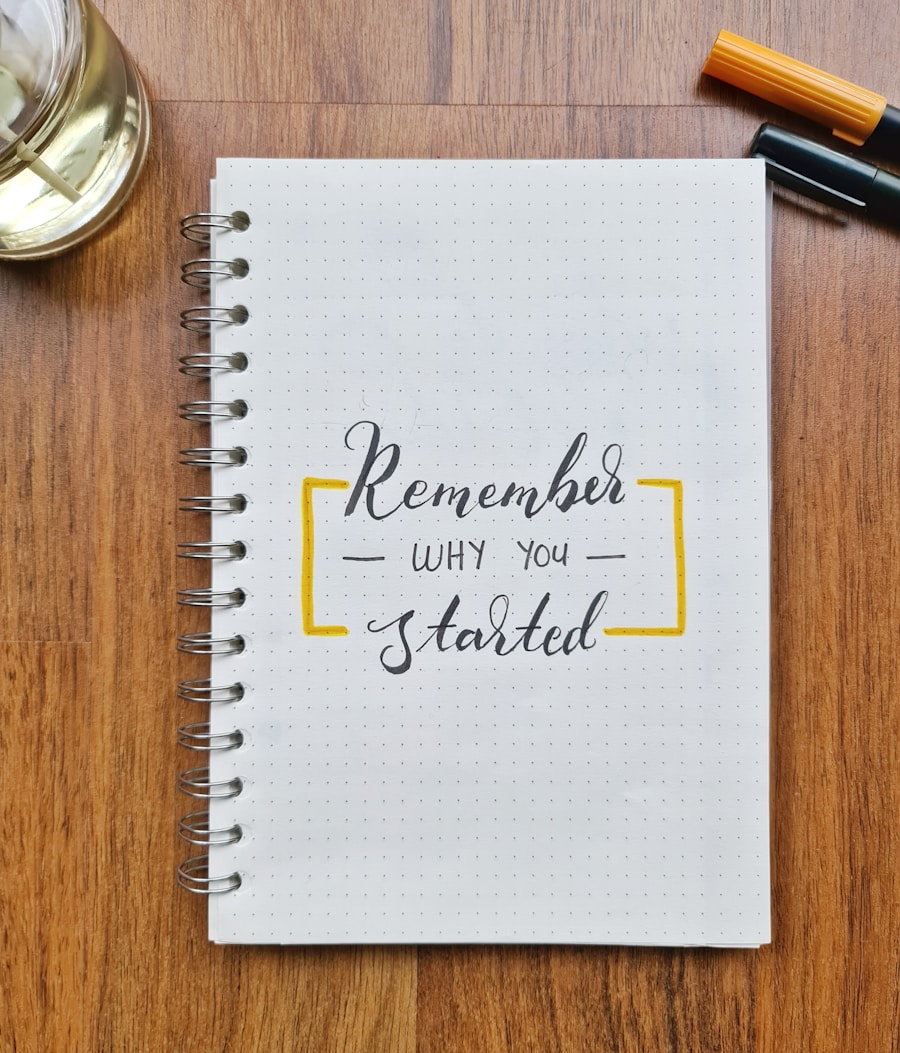 Remember
— WHY YOU —
Started